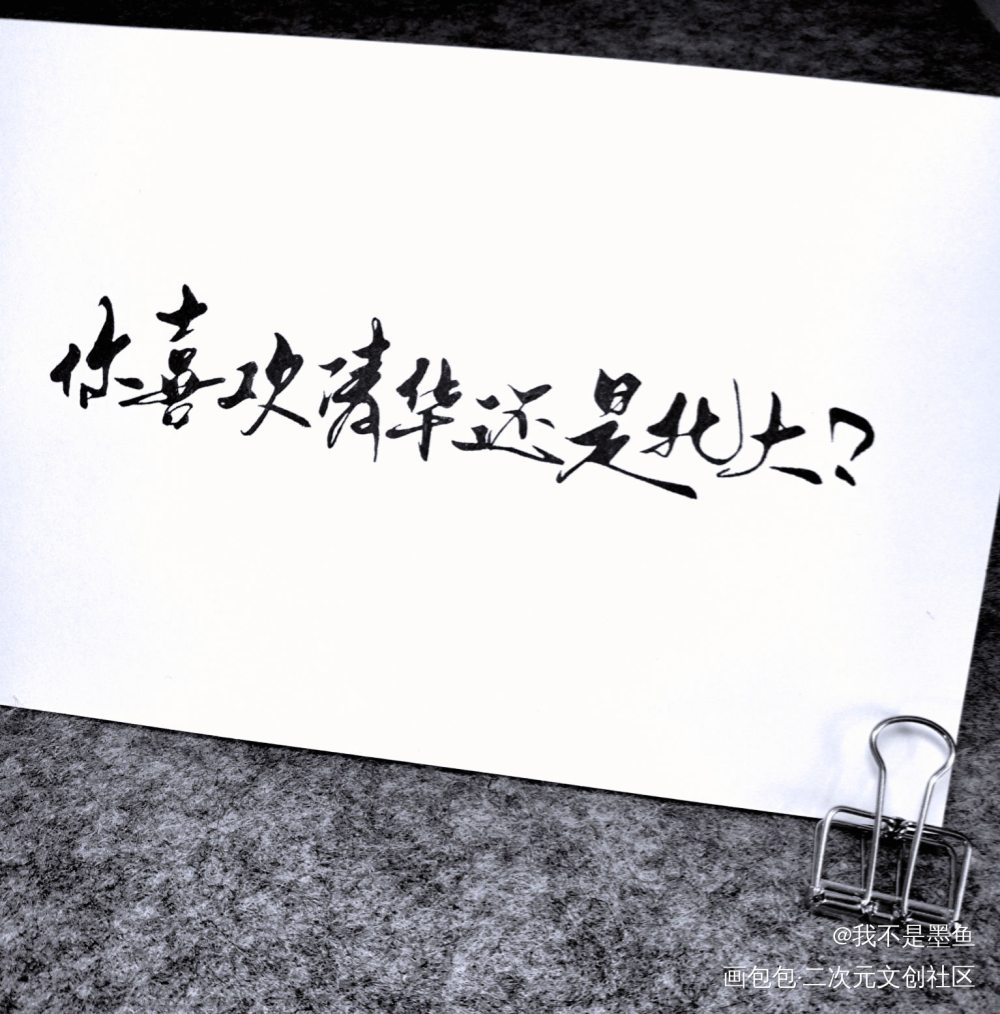 你喜欢清华还是北大?
@我不是墨鱼
画包包·二次元文创社区